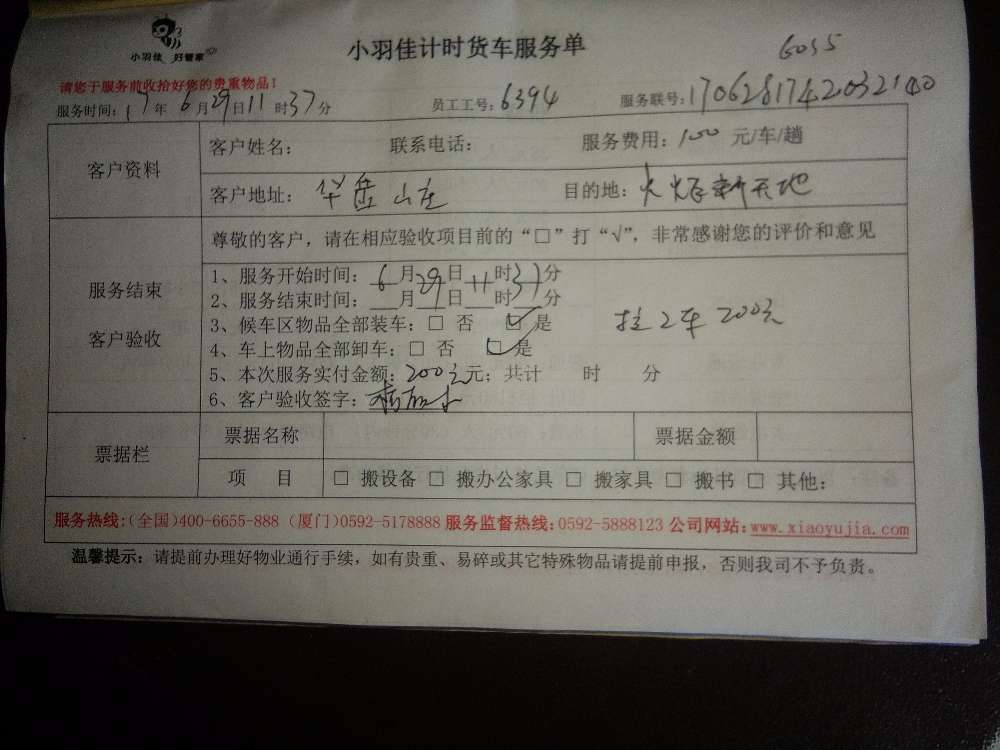 小羽佳 好管家
小羽佳计时货车服务单
6035
请您于服务前收拾好您的贵重物品！
服务时间：17年6月29日11时37分 员工工号：6394 服务联号：1706281742032140
客户资料
客户姓名： 联系电话： 服务费用：100 元/车/趟
客户地址：华岳山庄 目的地：火炬新天地
服务结束
客户验收
尊敬的客户，请在相应验收项目前的“□”打“√”，非常感谢您的评价和意见
1、服务开始时间：6月29日11时37分
2、服务结束时间：月日时分
3、候车区物品全部装车：□ 否 ☑是
4、车上物品全部卸车：□ 否 ☑是
5、本次服务实付金额：200元元；共计 时 分
6、客户验收签字：
拉2车 200元
票据栏
票据名称 票据金额
项 目 □ 搬设备 □ 搬办公家具 □ 搬家具 □ 搬书 □ 其他：
服务热线：（全国）400-6655-888（厦门）0592-5178888 服务监督热线：0592-5888123 公司网站：www.xiaoyujia.com
温馨提示：请提前办理好物业通行手续，如有贵重、易碎或其它特殊物品请提前申报，否则我司不予负责。